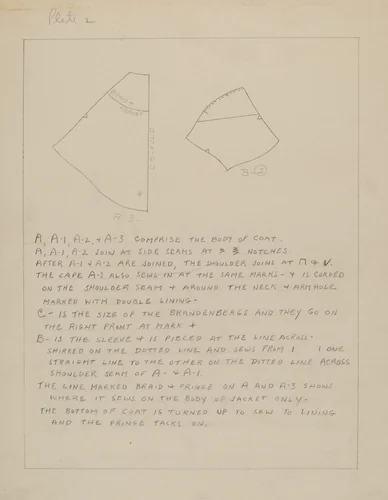 Plate 2
BRAID &
FRINGE
C B FOLD
A-3-
B-②
A, A-1, A-2, & A-3 COMPRISE THE BODY OF COAT.
A, A-1, A-2 JOIN AT SIDE SEAMS AT NOTCHES
AFTER A-1 & A-2 ARE JOINED, THE SHOULDER JOINS AT
THE CAPE A-3 ALSO SEWS IN AT THE SAME MARKS - & IS CORDED
ON THE SHOULDER SEAM & AROUND THE NECK & ARMHOLE
MARKED WITH DOUBLE LINING -
C - IS THE SIZE OF THE BRANDENBERGS AND THEY GO ON
THE RIGHT FRONT AT MARK +
B - IS THE SLEEVE & IS PIECED AT THE LINE ACROSS -
SHIRRED ON THE DOTTED LINE AND SEWS FROM 1 ONE
STRAIGHT LINE TO THE OTHER ON THE DOTTED LINE ACROSS
SHOULDER SEAM OF A - & A-1.
THE LINE MARKED BRAID & FRINGE ON A AND A-3 SHOWS
WHERE IT SEWS ON THE BODY OF JACKET ONLY -
THE BOTTOM OF COAT IS TURNED UP TO SEW TO LINING
AND THE FRINGE TACKS ON.